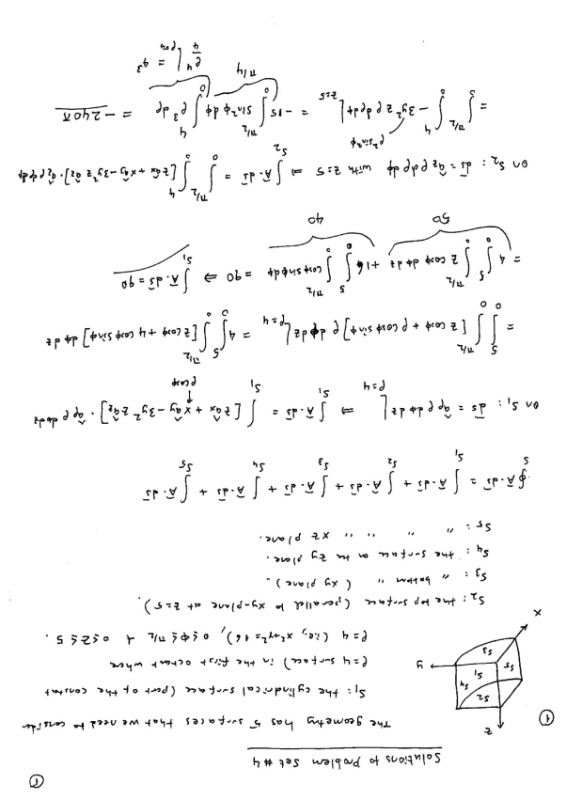 ①
Solutions to Problem Set #4
① The geometry has 5 surfaces that we need to consider
z S2 S4 S1 S5 S3 y x
S1: the cylindrical surface (part of the constant
ρ=4 surface) in the first octant where
ρ=4 (i.e., x²+y²=16), 0≤φ≤π/2 & 0≤z≤5.
S2: the top surface (parallel to xy-plane at z=5).
S3: " bottom " ( xy plane ).
S4: the surface on the zy plane.
S5: " " " " xz plane.
∮_S Ā·ds̄ = ∫_S1 Ā·ds̄ + ∫_S2 Ā·ds̄ + ∫_S3 Ā·ds̄ + ∫_S4 Ā·ds̄ + ∫_S5 Ā·ds̄
on S1: ds̄ = âρ ρ dφ dz |_ρ=4 ⇒ ∫_S1 Ā·ds̄ = ∫_S1 [z âx + x ây - 3y² z âz] · âρ ρ dφ dz
ρcosφ
= ∫_0^5 ∫_0^π/2 [z cosφ + ρ cosφ sinφ] ρ dφ dz |_ρ=4 = 4 ∫_0^5 ∫_0^π/2 [z cosφ + 4 cosφ sinφ] dφ dz
= 4 ∫_0^5 ∫_0^π/2 z cosφ dφ dz + 16 ∫_0^5 ∫_0^π/2 cosφ sinφ dφ dz = 90 ⇒ ∫_S1 Ā·ds̄ = 90
50 40
on S2: ds̄ = âz ρ dρ dφ with z=5 ⇒ ∫_S2 Ā·ds̄ = ∫_0^π/2 ∫_0^4 [z âx + x ây - 3y² z âz] · âz ρ dρ dφ
ρ² sin²φ
= ∫_0^π/2 ∫_0^4 -3y² z ρ dρ dφ |_z=5 = -15 ∫_0^π/2 sin²φ dφ ∫_0^4 ρ³ dρ = -240π
π/4 ρ⁴/4 |_ρ=4 = 4³